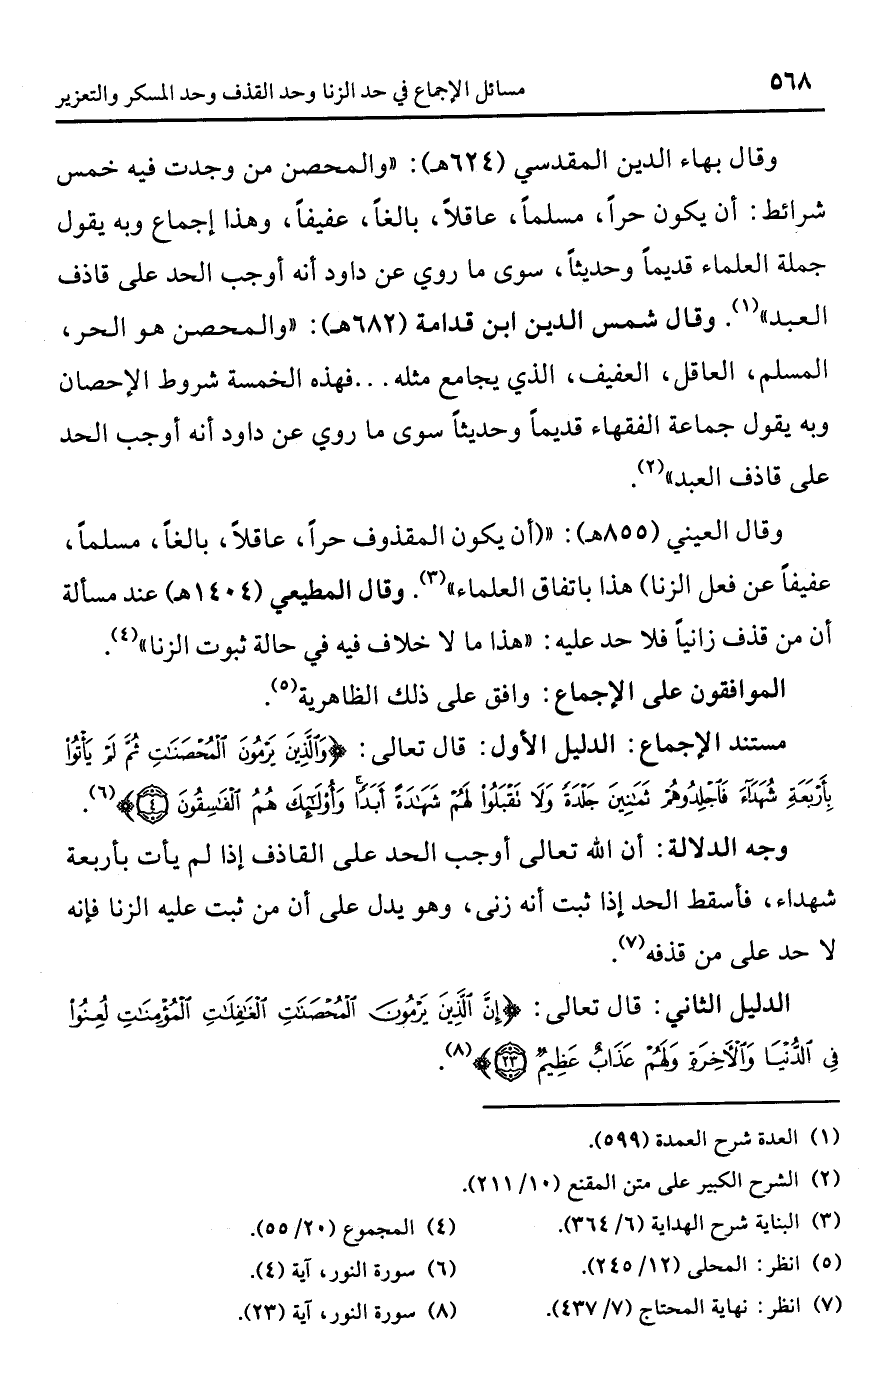 ٥٦٨
مسائل الإجماع في حد الزنا وحد القذف وحد المسكر والتعزير
وقال بهاء الدين المقدسي (٦٢٤هـ): «والمحصن من وجدت فيه خمس
شرائط: أن يكون حراً، مسلماً، عاقلاً، بالغاً، عفيفاً، وهذا إجماع وبه يقول
جملة العلماء قديماً وحديثاً، سوى ما روي عن داود أنه أوجب الحد على قاذف
العبد»(١). وقال شمس الدين ابن قدامة (٦٨٢هـ): «والمحصن هو الحر،
المسلم، العاقل، العفيف، الذي يجامع مثله...فهذه الخمسة شروط الإحصان
وبه يقول جماعة الفقهاء قديماً وحديثاً سوى ما روي عن داود أنه أوجب الحد
على قاذف العبد»(٢).
وقال العيني (٨٥٥هـ): «(أن يكون المقذوف حراً، عاقلاً، بالغاً، مسلماً،
عفيفاً عن فعل الزنا) هذا باتفاق العلماء»(٣). وقال المطيعي (١٤٠٤هـ) عند مسألة
أن من قذف زانياً فلا حد عليه: «هذا ما لا خلاف فيه في حالة ثبوت الزنا»(٤).
الموافقون على الإجماع: وافق على ذلك الظاهرية(٥).
مستند الإجماع: الدليل الأول: قال تعالى: ﴿وَٱلَّذِينَ يَرْمُونَ ٱلْمُحْصَنَٰتِ ثُمَّ لَمْ يَأْتُوا۟
بِأَرْبَعَةِ شُهَدَآءَ فَٱجْلِدُوهُمْ ثَمَٰنِينَ جَلْدَةً وَلَا تَقْبَلُوا۟ لَهُمْ شَهَٰدَةً أَبَدًا ۚ وَأُو۟لَٰٓئِكَ هُمُ ٱلْفَٰسِقُونَ ٤﴾(٦).
وجه الدلالة: أن الله تعالى أوجب الحد على القاذف إذا لم يأت بأربعة
شهداء، فأسقط الحد إذا ثبت أنه زنى، وهو يدل على أن من ثبت عليه الزنا فإنه
لا حد على من قذفه(٧).
الدليل الثاني: قال تعالى: ﴿إِنَّ ٱلَّذِينَ يَرْمُونَ ٱلْمُحْصَنَٰتِ ٱلْغَٰفِلَٰتِ ٱلْمُؤْمِنَٰتِ لُعِنُوا۟
فِى ٱلدُّنْيَا وَٱلْأَخِرَةِ وَلَهُمْ عَذَابٌ عَظِيمٌ ٢٣﴾(٨).
(١) العدة شرح العمدة (٥٩٩).
(٢) الشرح الكبير على متن المقنع (١٠/ ٢١١).
(٣) البناية شرح الهداية (٦/ ٣٦٤).
(٤) المجموع (٢٠/ ٥٥).
(٥) انظر: المحلى (١٢/ ٢٤٥).
(٦) سورة النور، آية (٤).
(٧) انظر: نهاية المحتاج (٧/ ٤٣٧).
(٨) سورة النور، آية (٢٣).